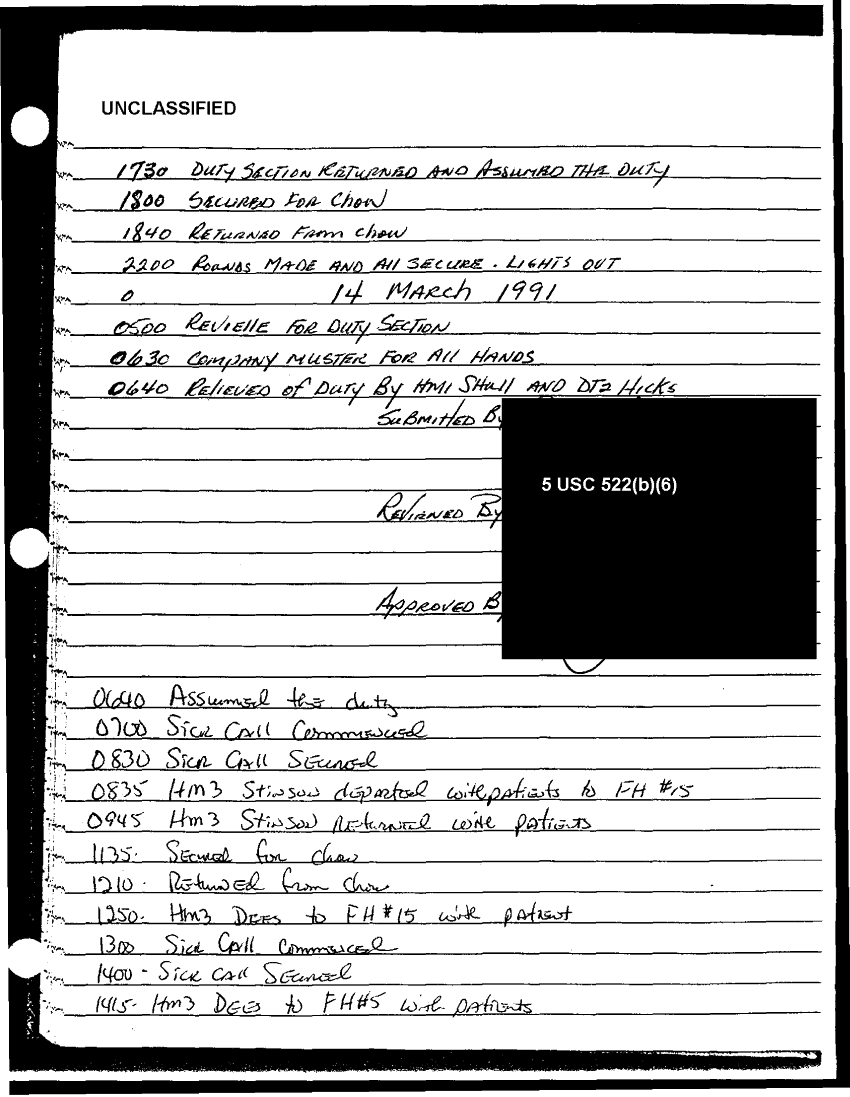 UNCLASSIFIED
1730 DUTY SECTION RETURNED AND ASSUMED THE DUTY
1800 SECURED FOR CHOW
1840 RETURNED FROM CHOW
2200 ROUNDS MADE AND All SECURE. LIGHTS OUT
0 14 MARCH 1991
0500 REVIEllE FOR DUTY SECTION
0630 COMPANY MUSTER FOR All HANDS
0640 RELIEVED OF DUTY By HM1 SHull AND DT2 HICKS
SUBMITTED B
5 USC 522(b)(6)
REVIEWED By
APPROVED B
0640 Assumed the duty
0700 Sick Call Commenced
0830 Sick Call Secured
0835 Hm3 Stinson departed with patients to FH #15
0945 Hm3 Stinson Returned with patients
1135. Secured for chow
1210. Returned from Chow
1250. Hm3 DEES to FH #15 with patient
1300 Sick Call Commenced
1400 - Sick Call Secured
1415- Hm3 DEES to FH#5 with patients